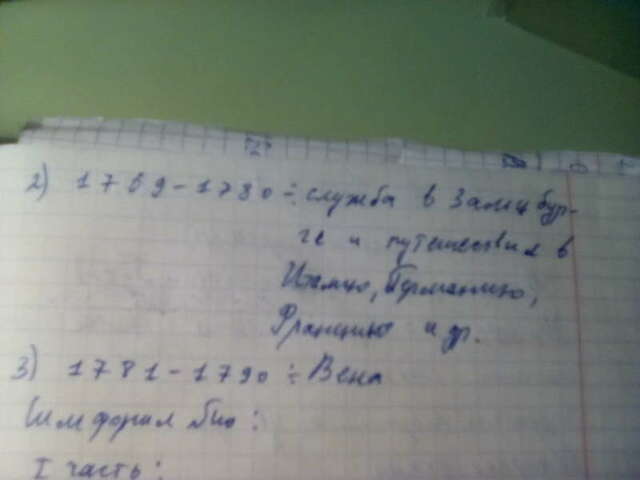 2) 1769-1780 ÷ служба в Зальцбур-
ге и путешествия в
Италию, Германию,
Францию и др.
3) 1781-1790 ÷ Вена
Симфония
I часть: